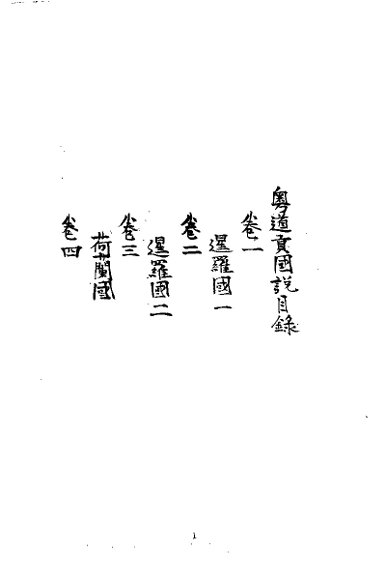 粵道貢國說目錄
卷一
暹羅國一
卷二
暹羅國二
卷三
荷蘭國
卷四
1